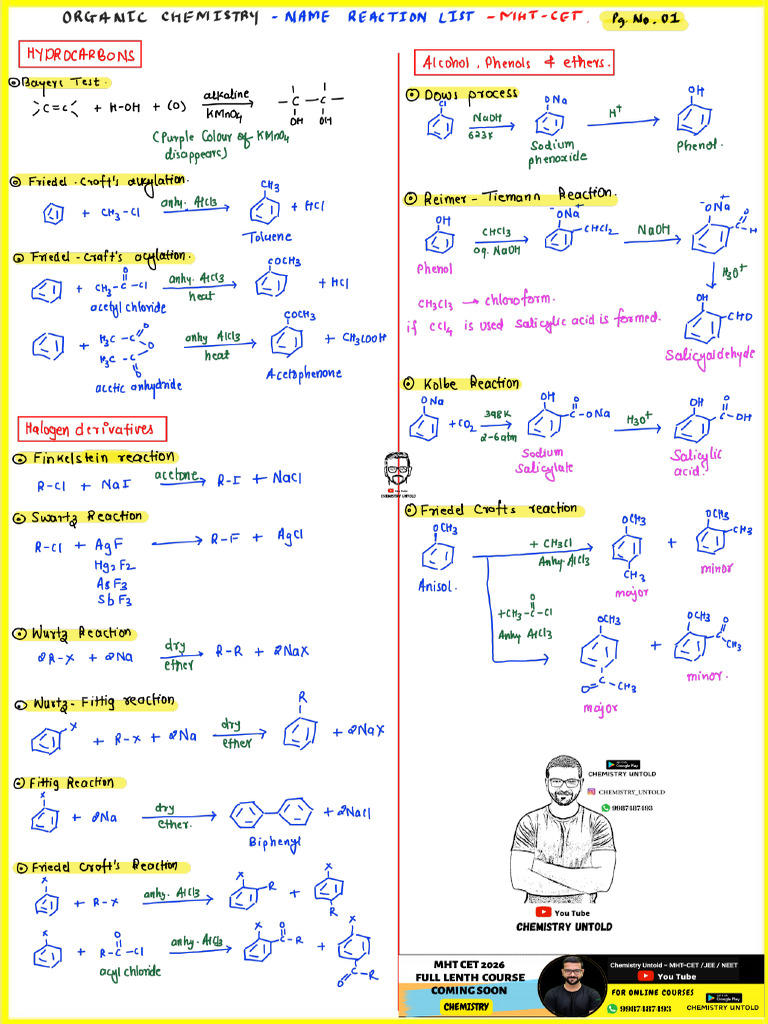 ORGANIC CHEMISTRY - NAME REACTION LIST - MHT-CET. Pg. No. 01
HYDROCARBONS
Bayers Test.
>C=C< + H-OH + (O) alkaline KMnO4 -C-C- OH OH
(Purple Colour of KMnO4
disappears)
Friedel-Craft's alkylation.
+ CH3-Cl anhy. AlCl3 CH3 + HCl
Toluene
Friedel-Craft's acylation.
+ CH3-C-Cl O anhy. AlCl3 heat COCH3 + HCl
acetyl chloride
+ H3C-C O O H3C-C O anhy AlCl3 heat COCH3 + CH3COOH
acetic anhydride
Acetophenone
Halogen derivatives
Finkelstein reaction
R-Cl + NaI acetone R-I + NaCl
Swartz Reaction
R-Cl + AgF R-F + AgCl
Hg2F2
AsF3
SbF3
Wurtz Reaction
2R-X + 2Na dry ether R-R + 2NaX
Wurtz-Fittig reaction
X + R-X + 2Na dry ether R + 2NaX
Fittig Reaction
X + 2Na dry ether. + 2NaCl
Biphenyl
Friedel Croft's Reaction
X + R-X anhy. AlCl3 X R + X R
X + R-C-Cl O anhy. AlCl3 X O C-R + X O=C-R
acyl chloride
Alcohol, Phenols & ethers.
Dows process
Cl NaOH 623K ONa H+ OH
Sodium
phenoxide
Phenol.
Reimer-Tiemann Reaction.
OH CHCl3 aq. NaOH -ONa+ CHCl2 NaOH -ONa+ O C-H
Phenol
H3O+
CH3Cl3 → chloroform.
if CCl4 is used Salicylic acid is formed.
OH CHO
Salicyaldehyde
Kolbe Reaction
ONa +CO2 398K 2-6atm OH O C-ONa H3O+ OH O C-OH
Sodium
Salicylate
Salicylic
acid.
YouTube
CHEMISTRY UNTOLD
Friedel Crofts reaction
OCH3 + CH3Cl Anhy AlCl3 OCH3 CH3 + OCH3 CH3
Anisol.
major
minor
+CH3-C-Cl O
Anhy AlCl3
OCH3 O=C-CH3 + OCH3 O C CH3
major
minor.
Google Play
CHEMISTRY UNTOLD
CHEMISTRY_UNTOLD
9987487493
You Tube
CHEMISTRY UNTOLD
MHT CET 2026
FULL LENTH COURSE
COMING SOON
CHEMISTRY
Chemistry Untold ~ MHT-CET /JEE / NEET
You Tube
FOR ONLINE COURSES
Google Play
9987487493 CHEMISTRY UNTOLD